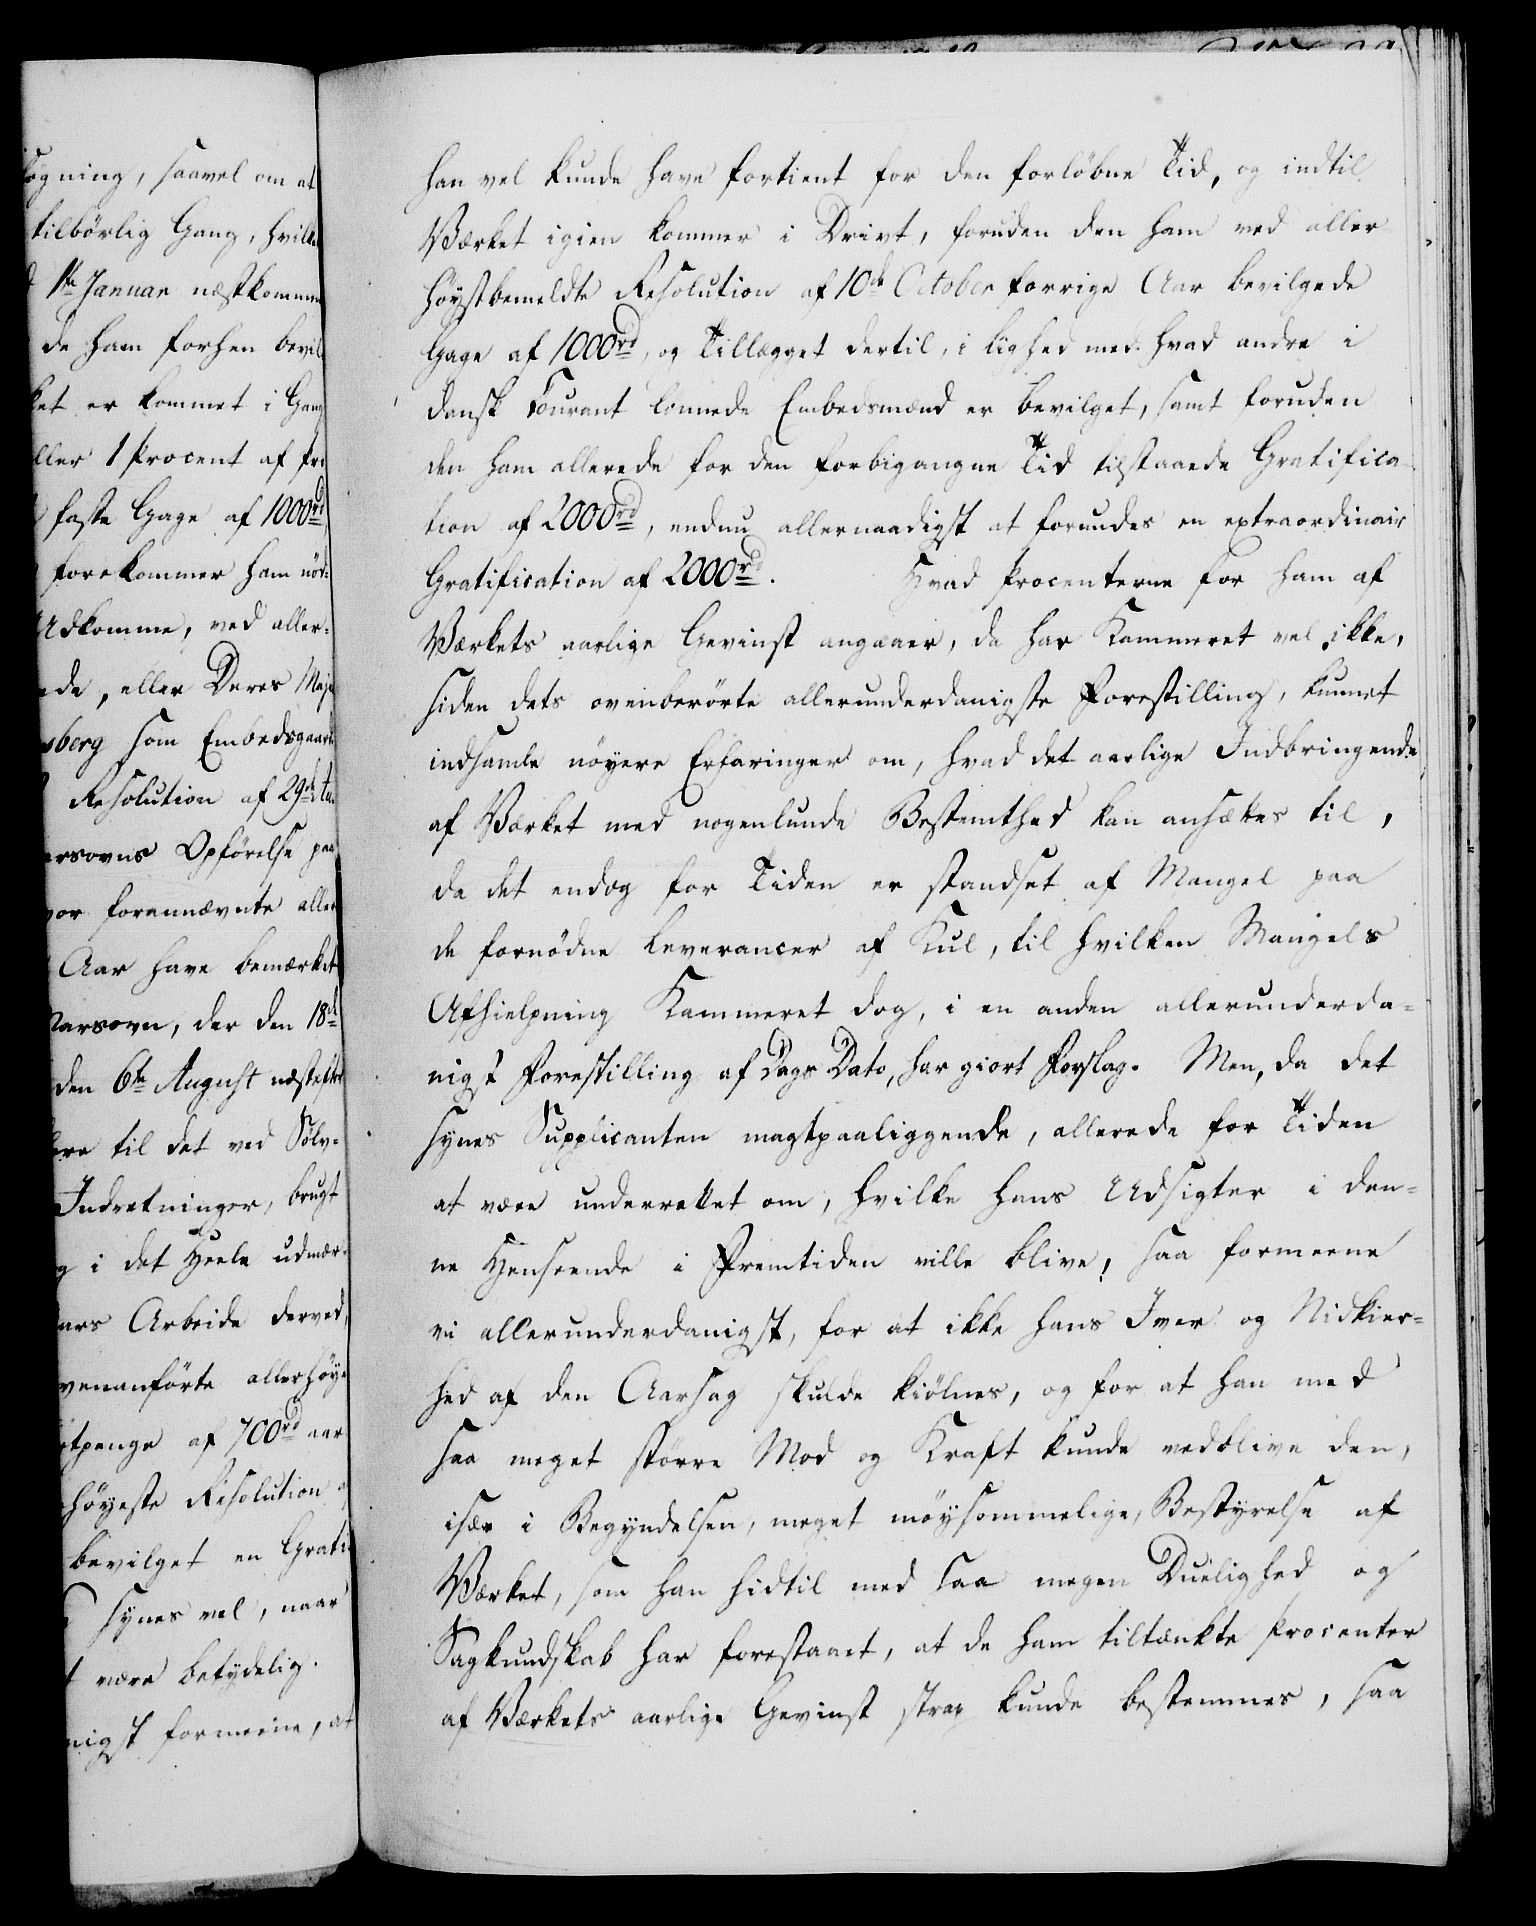 øgning, saavel om at
tilbörlig Gang, hvilke
1ste Januar næstkomme
de ham forhen bevil
ket er kommet i Gang
ller 1 Procent af fri
faste Gage af 1000rd
forekommer ham nöd=
Udkomme, ved aller=
ede, eller Deres Maje
sberg som Embedsgaard
Resolution af 29de
arsovns Opförelse paa
vor forannævnte aller
Aar have bemærket
Marsovn, der den 18de
den 6te August næstefter
ere til det ved Sölv=
Indretninger, brugt
g i det Heele udmær=
ars Arbeide derved,
venanförte allerhöye
tpenge af 700rd aar
höyeste Resolution af
bevilget en Grati
synes vel, naar
t være betydelig.
nigst formeene, at
han vel kunde have fortient for den forlöbne Tid, og indtil
Værket igien kommer i Drivt, foruden den ham ved aller=
höystbemeldte Resolution af 10de October forrige Aar bevilgede
Gage af 1000rd, og Tillægget dertil, i Lighed med hvad andre i
dansk Courant lönnede Embedsmænd er bevilget, samt foruden
den ham allerede for den forbigangne Tid tilstaaede Gratifica=
tion af 2000rd, endnu allernaadigst at forundes en extraordinair
Gratification af 2000rd. Hvad Procenterne for ham af
Værkets aarlige Gevinst angaaer, da har Kammeret vel ikke,
siden dets ovenberörte allerunderdanigste Forestilling, kunnet
indsamle nöyere Erfaringer om, hvad det aarlige Indbringende
af Værket med nogenlunde Bestemthed kan ansættes til,
da det endog for Tiden er standset af Mangel paa
de fornödne Leverancer af Kul, til hvilken Mangels
Afhielpning Kammeret dog, i en anden allerunderda=
nigst Forestilling af Dags Dato, har giort Forslag. Men, da det
synes Supplicanten magtpaaliggende, allerede for Tiden
at være underrettet om, hvilke hans Udsigter i den=
ne Henseende i Fremtiden ville blive, saa formeene
vi allerunderdanigst, for at ikke hans Iver og Nidkier=
hed af den Aarsag skulde kiölnes, og for at han med
saa meget större Mod og Kraft kunde vedblive den,
især i Begyndelsen, meget möysommelige, Bestyrelse af
Værket, som han hidtil med saa megen Duelighed og
Sagkundskab har forestaaet, at de ham tiltænkte Procenter
af Værkets aarlige Gevinst strax kunde bestemmes, saa